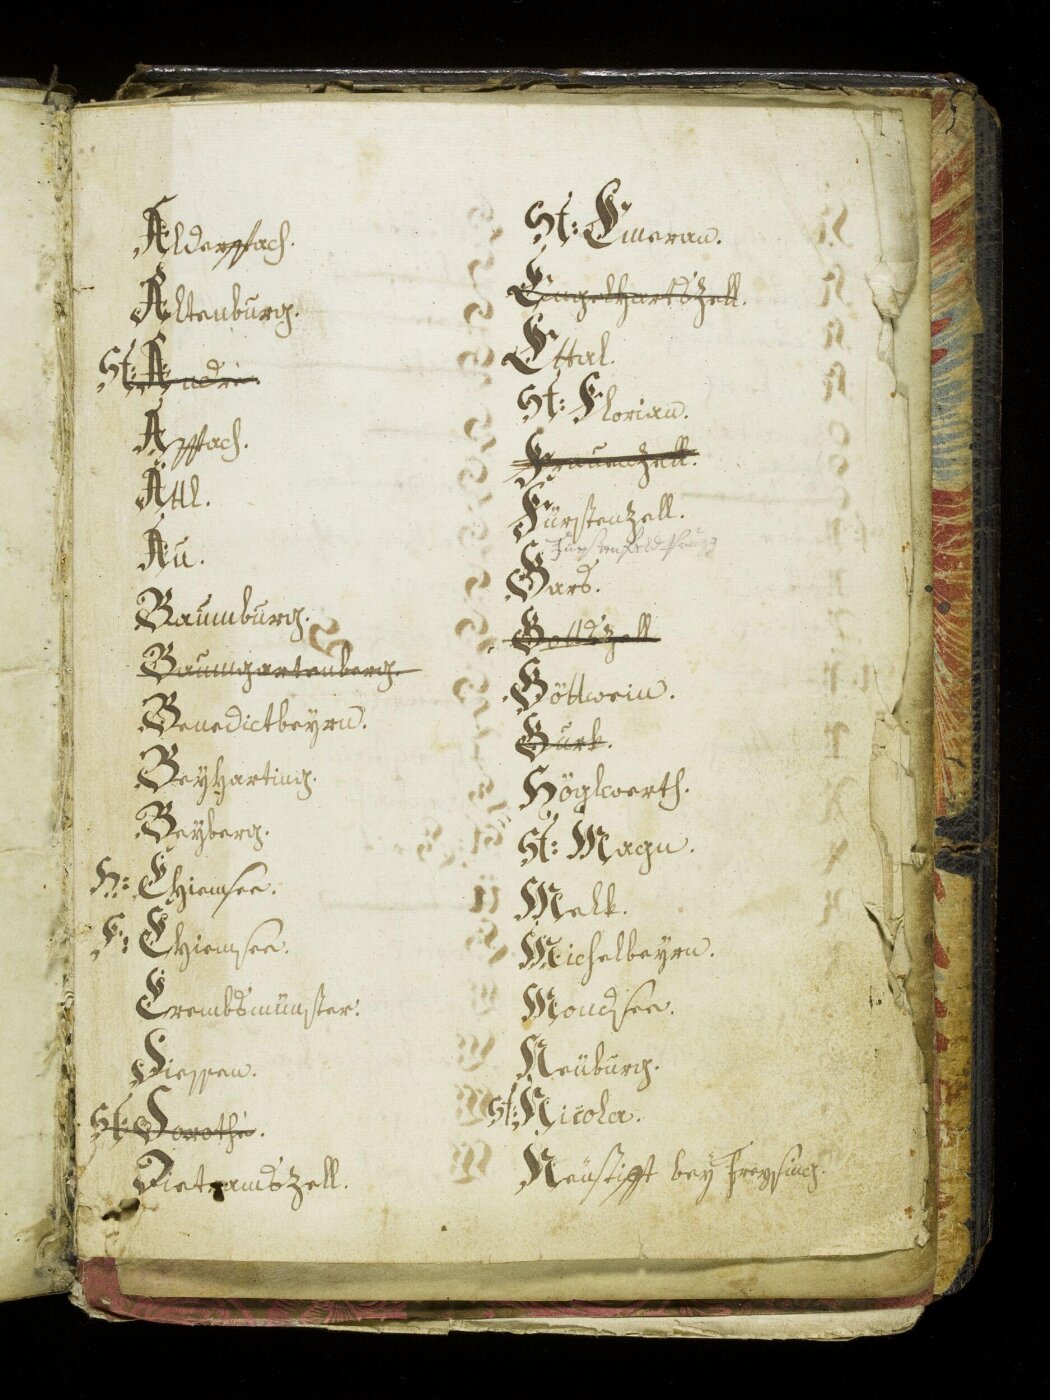 Alderspach.
Altenburg.
St: Andre.
Aspach.
Attl.
Au.
Baumburg.
Baumgartenberg.
Benedictbeyrn.
Beyharting.
Beyberg.
H: Chiemsee.
F: Chiemsee.
Crembsmünster.
Diessen.
St: Dorothe.
Dietramszell.
St: Emeran.
Engelhartszell.
Ettal.
St: Florian.
Frauenzell.
Fürstenzell.
Gars.
Gottszell
Göttwein.
Gurk.
Höglwerth.
St: Magn.
Melk.
Michelbeyrn.
Mondsee.
Neuburg.
St: Nicola.
Neustifft bey Freysing.